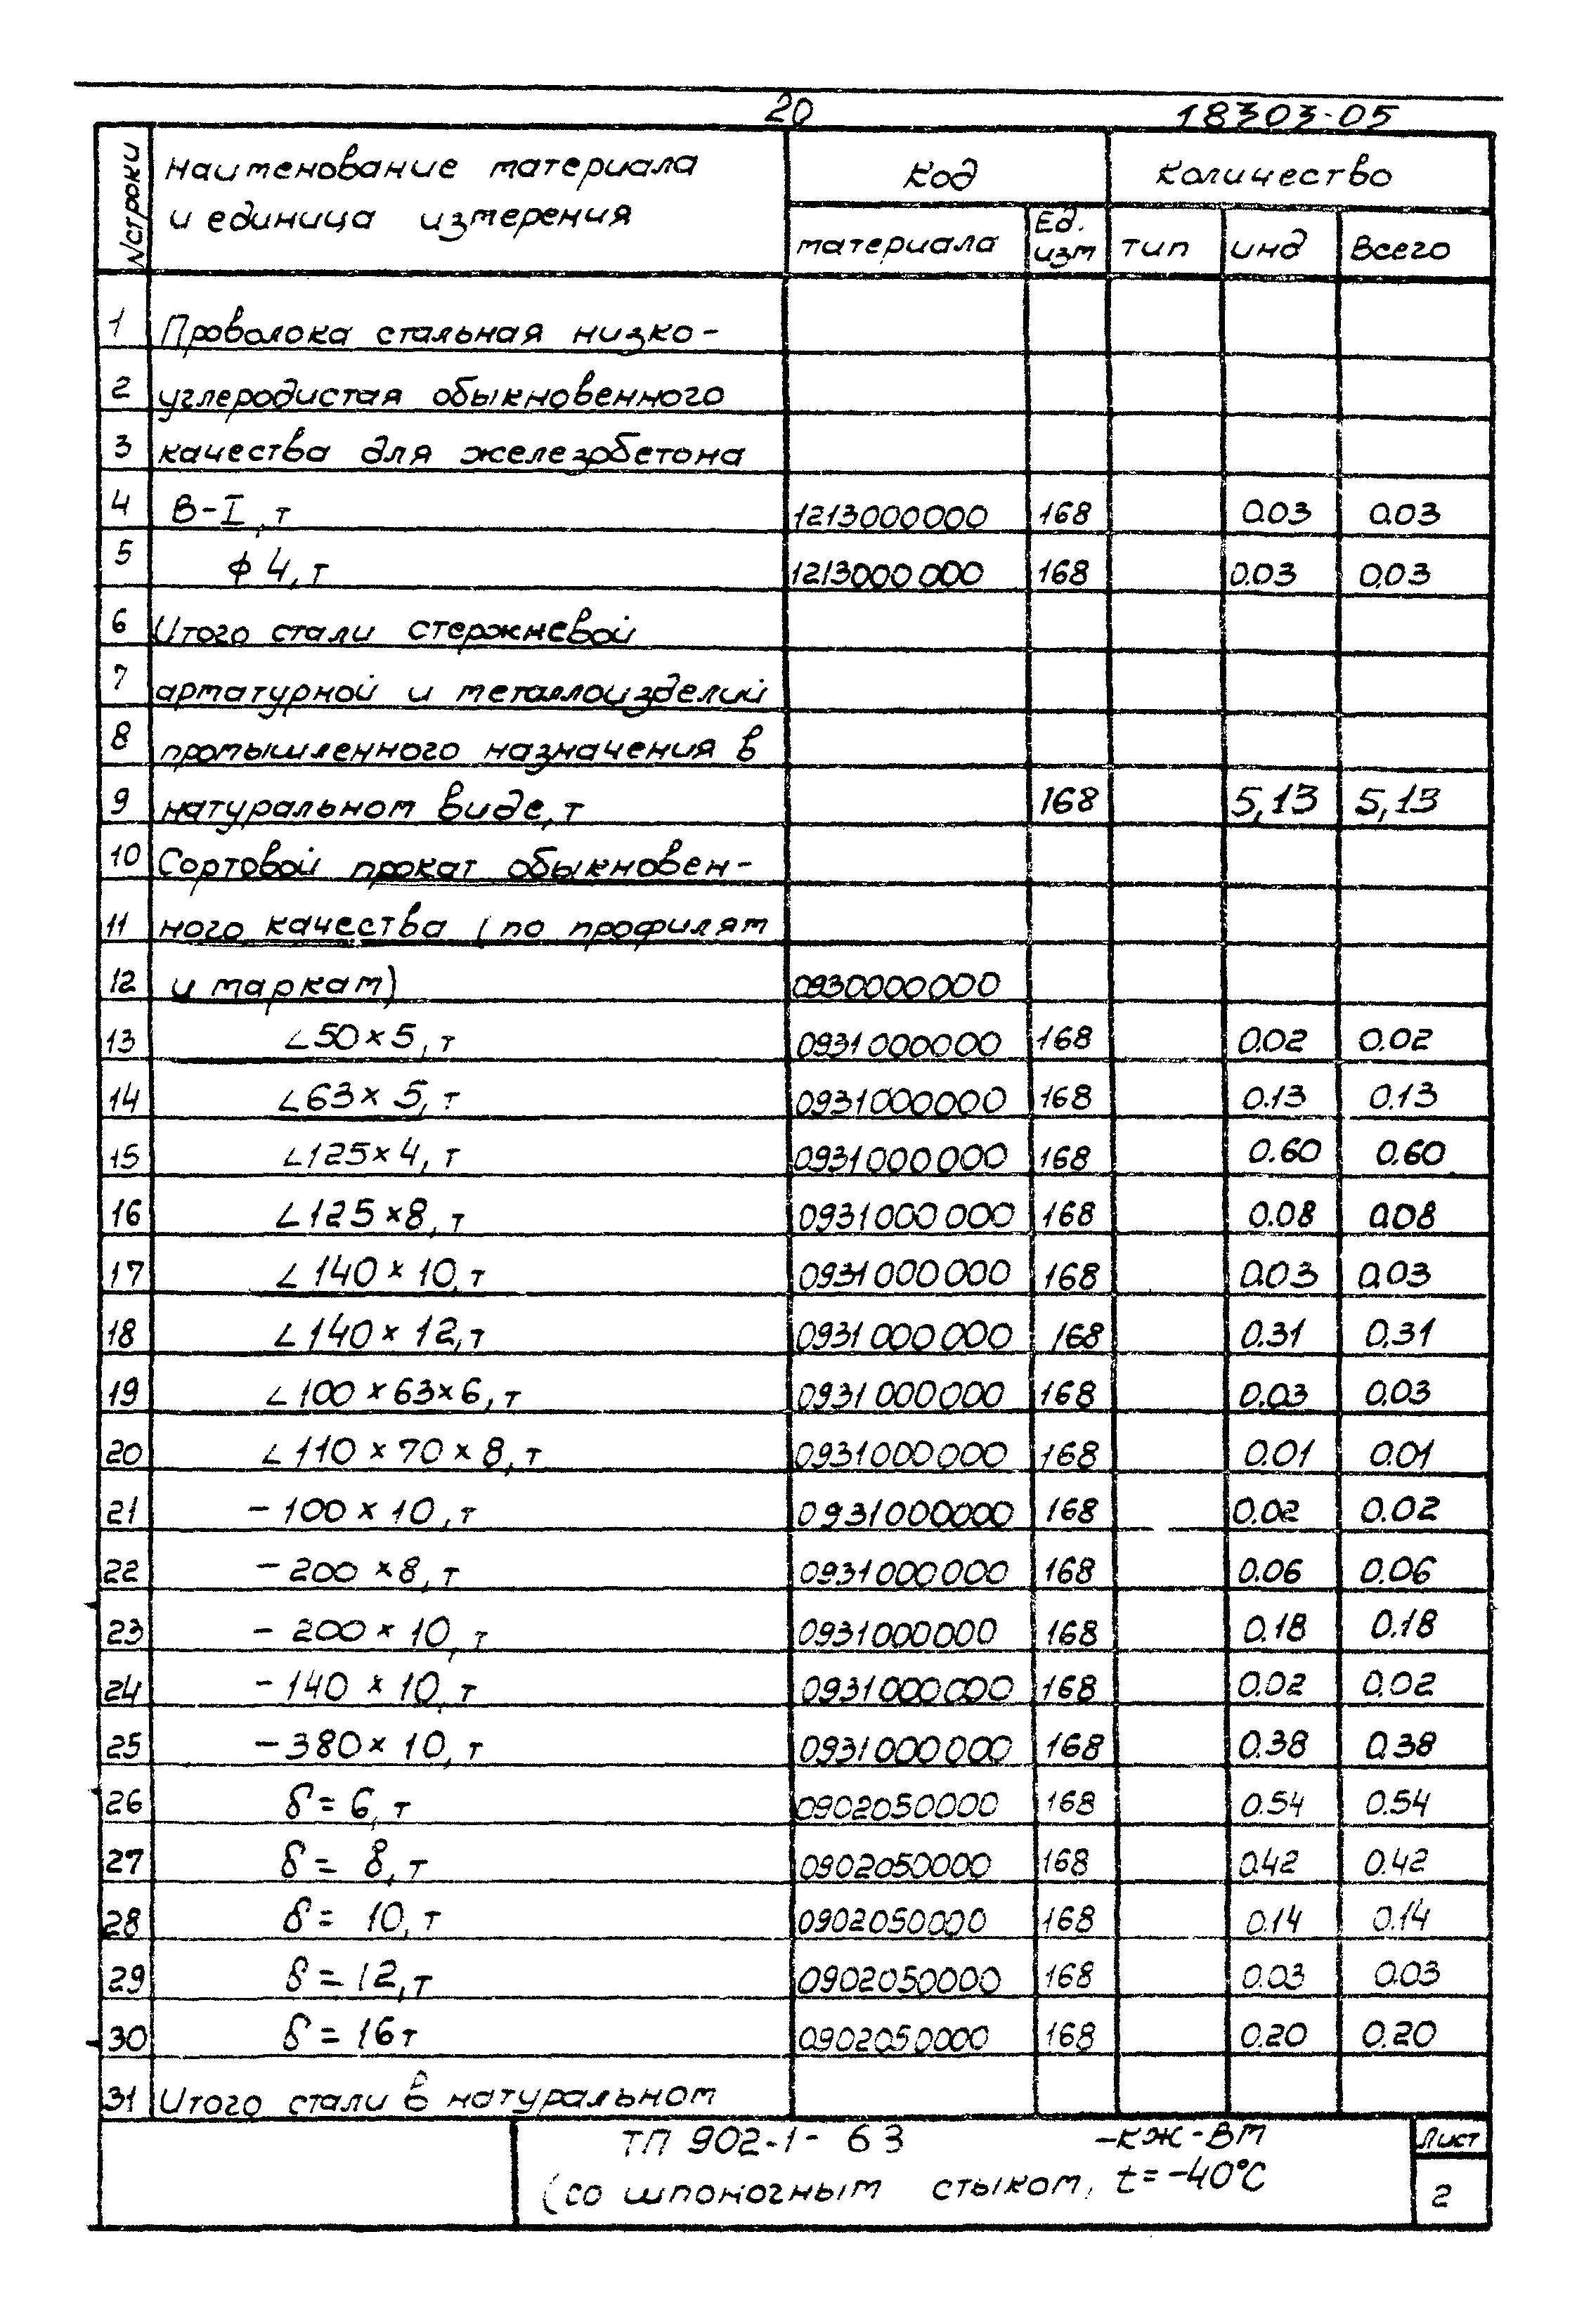 20 18303-05
N строки Наименование материала и единица измерения Код Количество
материала Ед. изм тип инд Всего
1 Проволока стальная низко-
2 углеродистая обыкновенного
3 качества для железобетона
4 В-I, т 1213000000 168 0.03 0.03
5 ф 4, т 1213000000 168 0.03 0,03
6 Итого стали стержневой
7 арматурной и металлоизделий
8 промышленного назначения в
9 натуральном виде, т 168 5,13 5,13
10 Сортовой прокат обыкновен-
11 ного качества (по профилям
12 и маркам) 0930000000
13 ∠50×5, т 0931000000 168 0.02 0.02
14 ∠63×5, т 0931000000 168 0.13 0.13
15 ∠125×4, т 0931000000 168 0.60 0.60
16 ∠125×8, т 0931000000 168 0.08 0.08
17 ∠140×10, т 0931000000 168 0.03 0.03
18 ∠140×12, т 0931000000 168 0.31 0.31
19 ∠100×63×6, т 0931000000 168 0.03 0.03
20 ∠110×70×8, т 0931000000 168 0.01 0.01
21 -100×10, т 0931000000 168 0.02 0.02
22 -200×8, т 0931000000 168 0.06 0.06
23 -200×10, т 0931000000 168 0.18 0.18
24 -140×10, т 0931000000 168 0.02 0.02
25 -380×10, т 0931000000 168 0.38 0.38
26 δ=6, т 0902050000 168 0.54 0.54
27 δ=8, т 0902050000 168 0.42 0.42
28 δ=10, т 0902050000 168 0.14 0.14
29 δ=12, т 0902050000 168 0.03 0.03
30 δ=16 т 0902050000 168 0.20 0.20
31 Итого стали в натуральном
ТП 902-1-63 -КЖ-ВМ Лист
(со шпоночным стыком, t=-40°C 2